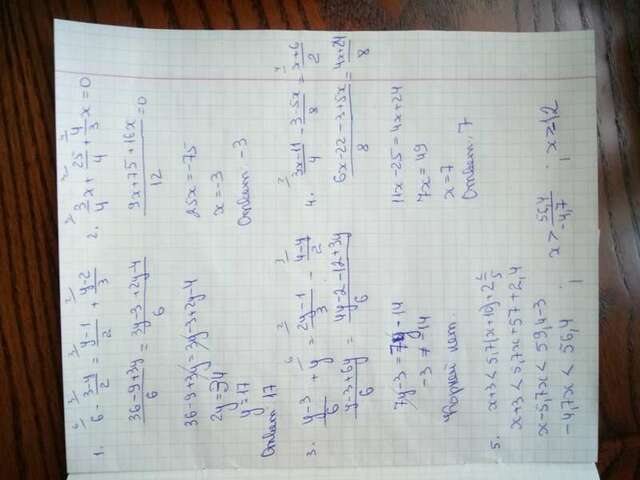 1. 6 - (3-y)/2 = (y-1)/2 + (y-2)/3
(36-9+3y)/6 = (3y-3+2y-4)/6
36-9+3y=3y-3+2y-4
2y=34
y=17
Ответ 17
2. 3/4 x + 25/4 + 4/3 x = 0
(9x+75+16x)/12 = 0
25x=-75
x=-3
Ответ: -3
3. (y-3)/6 + y = (2y-1)/3 - (4-y)/2
(y-3+6y)/6 = (4y-2-12+3y)/6
7y-3 = 7y-14
-3 ≠ -14
Корней нет.
4. (3x-11)/4 - (3-5x)/8 = (x+6)/2
(6x-22-3+5x)/8 = (4x+24)/8
11x-25=4x+24
7x=49
x=7
Ответ: 7
5. x+3<5,7(x+10)+2 2/5
x+3<5,7x+57+2,4
x-5,7x<59,4-3
-4,7x<56,4 ; x> 56,4/-4,7 ; x>-12